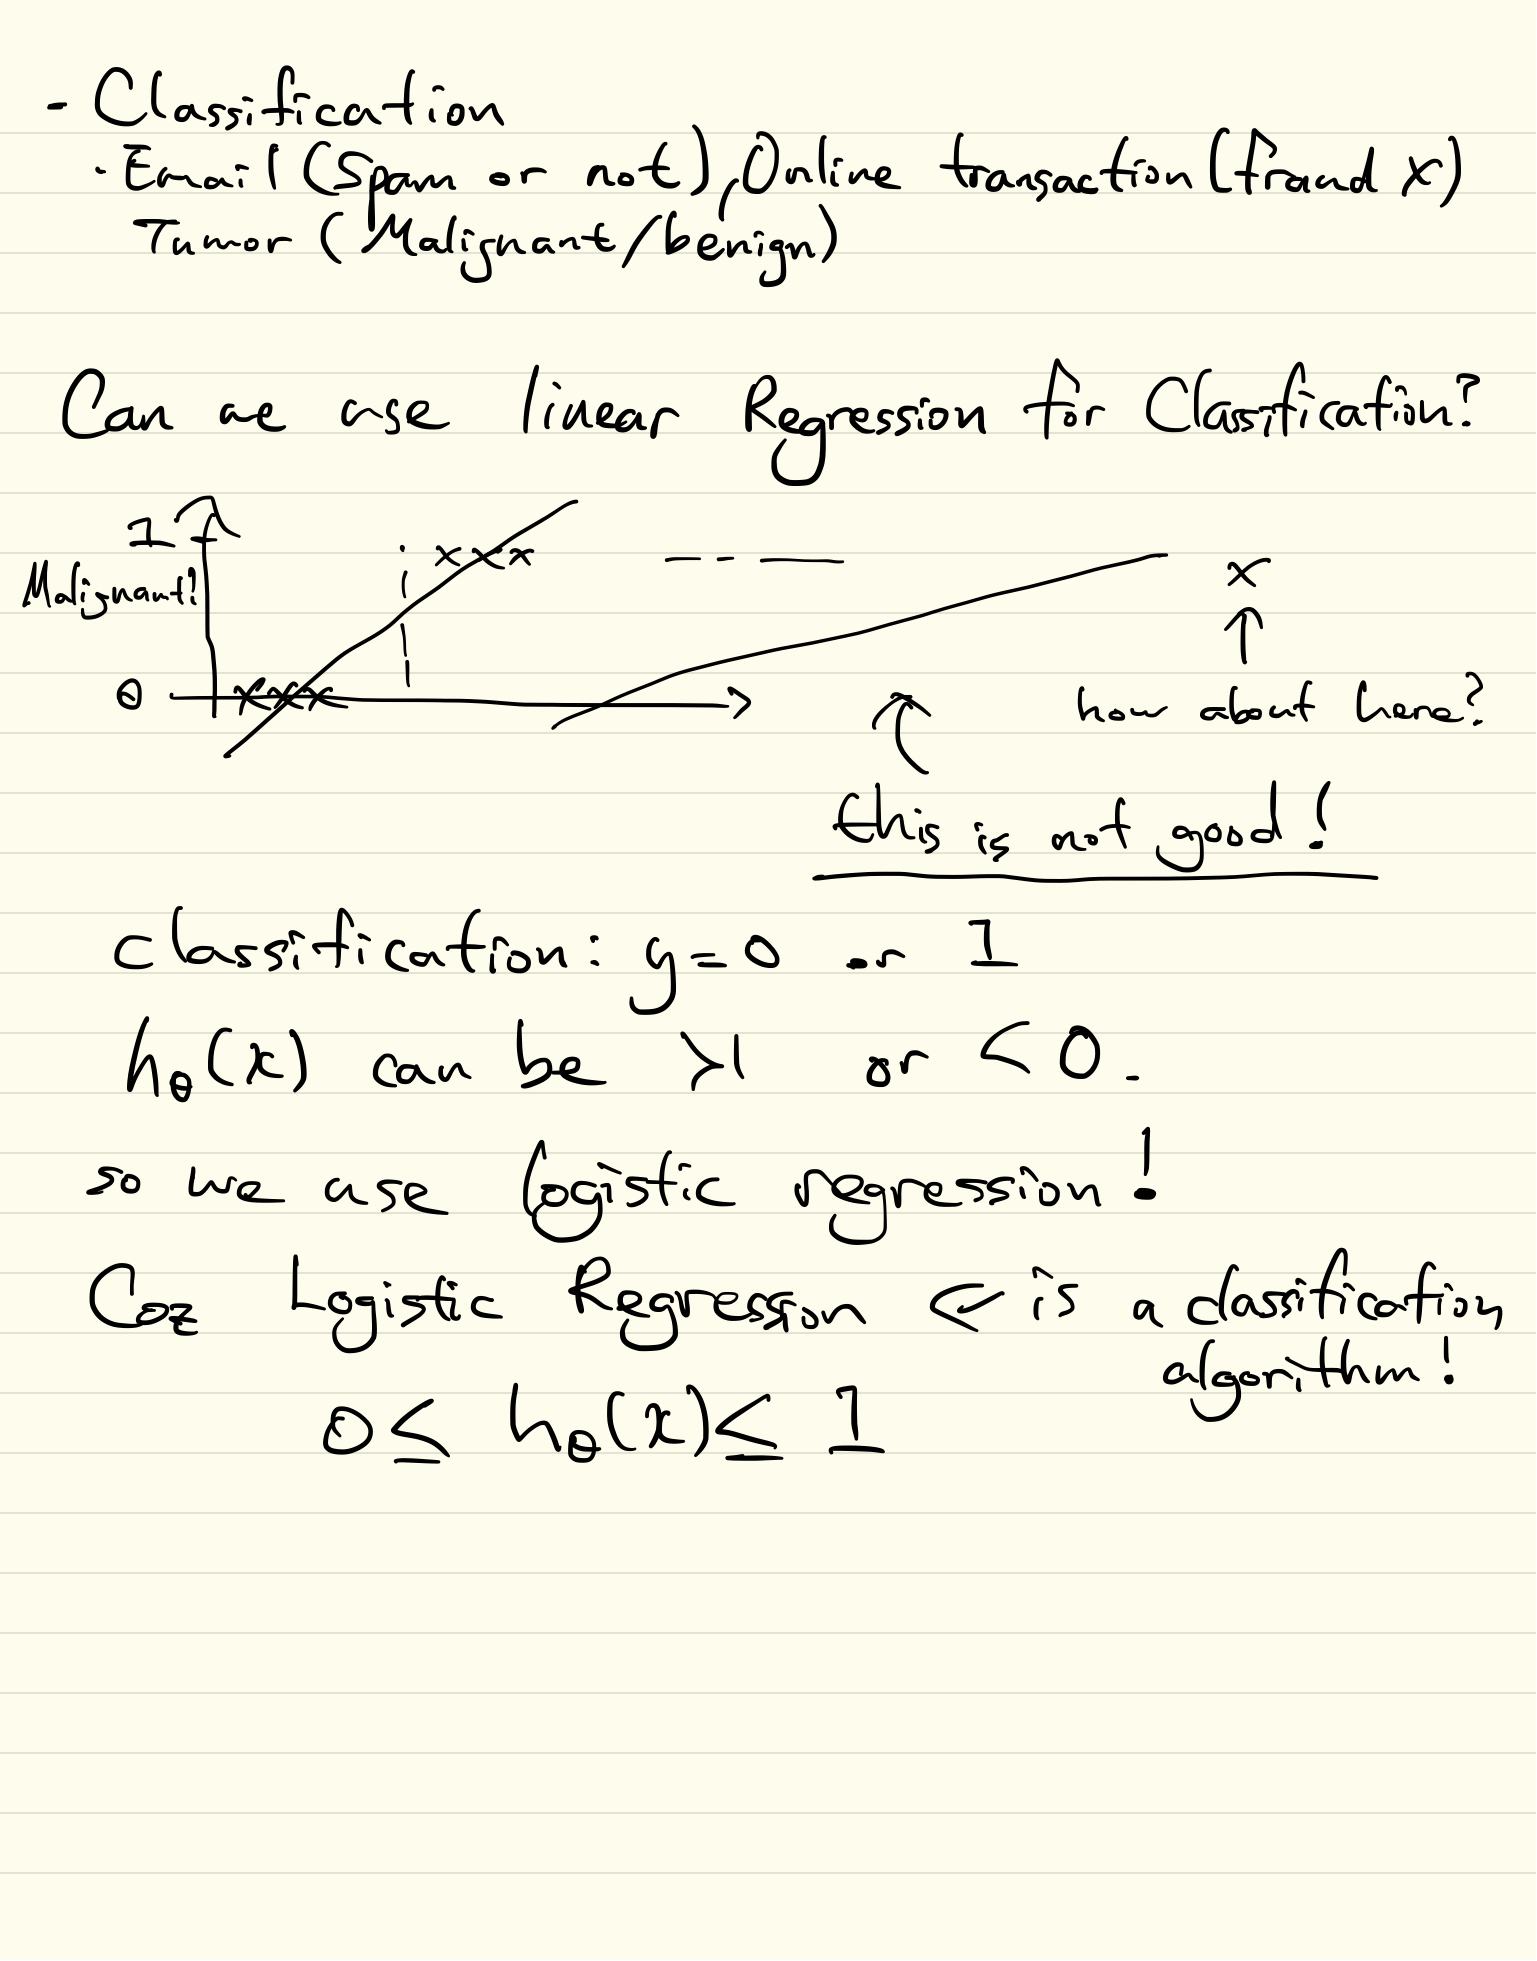 - Classification
· Email (Spam or not), Online transaction (fraud x)
Tumor (Malignant/benign)
Can we use linear Regression for Classification?
1
x x x
x
Malignant?
0
x x x
how about here?
this is not good!
classification: y=0 or 1
hθ(x) can be >1 or <0.
so we use logistic regression!
Coz Logistic Regression ← is a classification
algorithm!
0≤ hθ(x)≤ 1